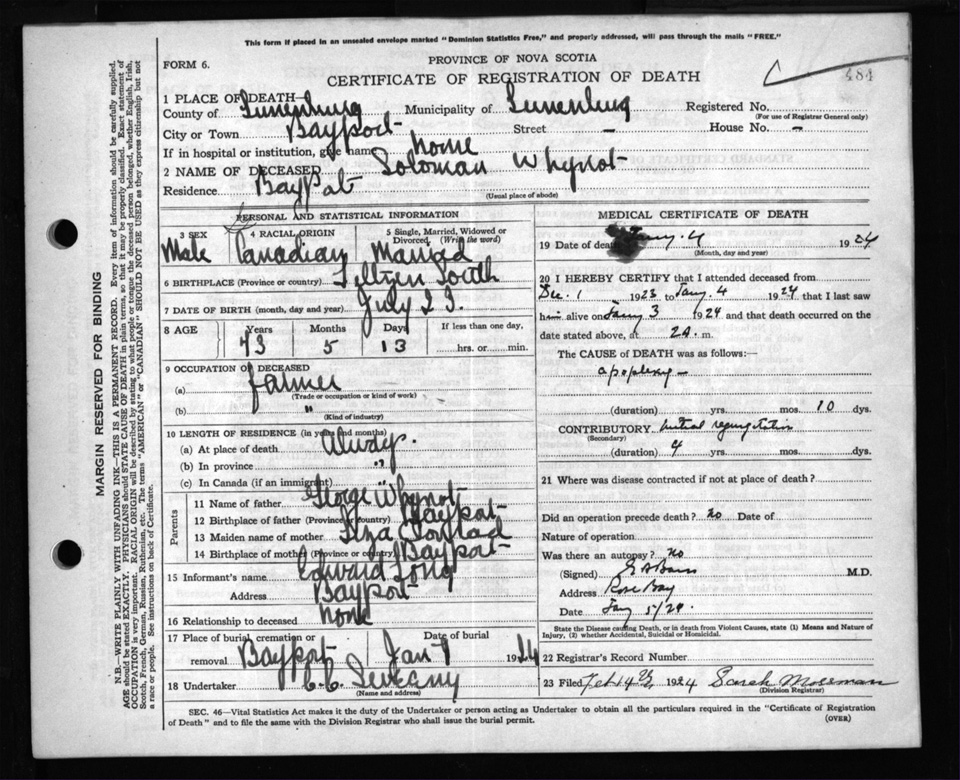 This form if placed in an unsealed envelope marked "Dominion Statistics Free," and properly addressed, will pass through the mails "FREE."
FORM 6.
PROVINCE OF NOVA SCOTIA
CERTIFICATE OF REGISTRATION OF DEATH
484
1 PLACE OF DEATH
County of Lunenburg Municipality of Lunenburg Registered No.
(For use of Registrar General only)
City or Town Bayport Street - House No. -
If in hospital or institution, give name home
2 NAME OF DECEASED Soloman Whynot
Residence Bayport
(Usual place of abode)
PERSONAL AND STATISTICAL INFORMATION
3 SEX 4 RACIAL ORIGIN 5 Single, Married, Widowed or Divorced. (Write the word)
Male Canadian Married
6 BIRTHPLACE (Province or country) Feltzen South
7 DATE OF BIRTH (month, day and year) July 23.
8 AGE Years Months Days If less than one day,
73 5 13 hrs. or min.
9 OCCUPATION OF DECEASED
(a) farmer
(Trade or occupation or kind of work)
(b) "
(Kind of industry)
10 LENGTH OF RESIDENCE (in years and months)
(a) At place of death Always.
(b) In province "
(c) In Canada (if an immigrant)
Parents
11 Name of father George Whynot
12 Birthplace of father (Province or country) Bayport
13 Maiden name of mother
14 Birthplace of mother (Province or country) Bayport
15 Informant's name Edward Long
Address Bayport
16 Relationship to deceased none
17 Place of burial, cremation or removal Bayport Date of burial Jan 7 1924
18 Undertaker
(Name and address)
MEDICAL CERTIFICATE OF DEATH
19 Date of death Jany. 4 1924
(Month, day and year)
20 I HEREBY CERTIFY that I attended deceased from
Dec. 1 1923 to Jany. 4 1924 that I last saw
him alive on Jany 3 1924 and that death occurred on the
date stated above, at 2 a. m.
The CAUSE of DEATH was as follows:—
apoplexy —
(duration) yrs. mos. 10 dys.
CONTRIBUTORY mitral regurgitation
(Secondary)
(duration) 4 yrs. mos. dys.
21 Where was disease contracted if not at place of death?
Did an operation precede death? no Date of
Nature of operation
Was there an autopsy? no
(Signed) M.D.
Address Rose Bay
Date Jany 5/24.
State the Disease causing Death, or in death from Violent Causes, state (1) Means and Nature of
Injury, (2) whether Accidental, Suicidal or Homicidal.
22 Registrar's Record Number
23 Filed Feb 14 1924 Sarah Mossman
(Division Registrar)
SEC. 46—Vital Statistics Act makes it the duty of the Undertaker or person acting as Undertaker to obtain all the particulars required in the "Certificate of Registration
of Death" and to file the same with the Division Registrar who shall issue the burial permit.
(OVER)
MARGIN RESERVED FOR BINDING
N.B.—WRITE PLAINLY WITH UNFADING INK—THIS IS A PERMANENT RECORD. Every item of information should be carefully supplied.
AGE should be stated EXACTLY. PHYSICIANS should STATE CAUSE OF DEATH in plain terms, so that it may be properly classified. Exact statement of
OCCUPATION is very important. RACIAL ORIGIN will be described by stating to what people or tongue the deceased person belonged, whether English, Irish,
Scotch, French, German, Russian, Ruthenian, etc. The terms "AMERICAN" or "CANADIAN" SHOULD NOT BE USED as they express citizenship but not
a race or people. See instructions on back of Certificate.